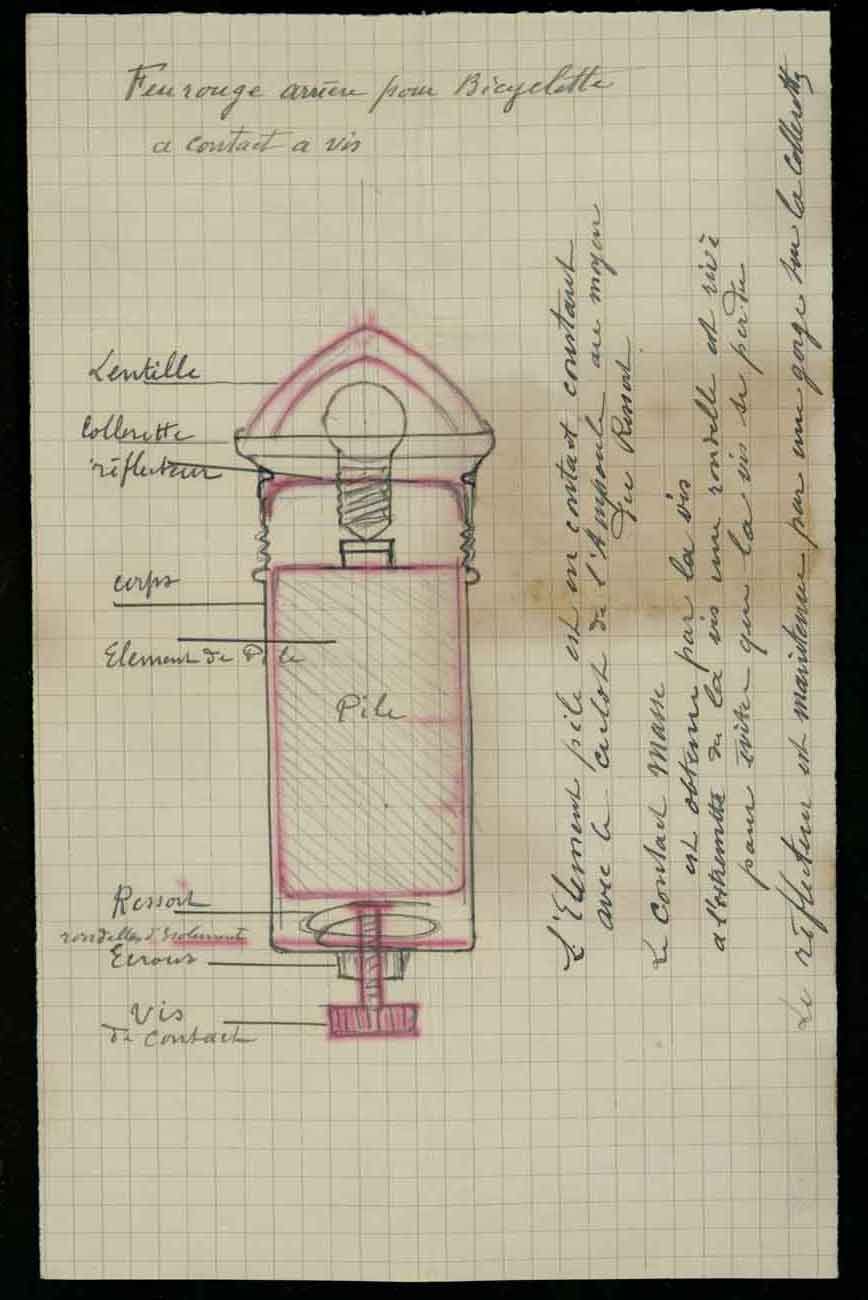 Feu rouge arriere pour Bicyclette
a contact a vis
Lentille
Collerette
réflecteur
corps
Element de Pile
Pile
Ressort
rondelles d'Isolement
Ecrous
Vis
de Contact
L'Element pile est en contact constant
avec le culot de l'Ampoule au moyen
du Ressort.
Le Contact Masse
est obtenu par la vis
a l'extremitte de la vis une rondelle est rivè
pour èviter que la vis se per du
Le réflecteur est maintenue par une gorge sur la Collerette